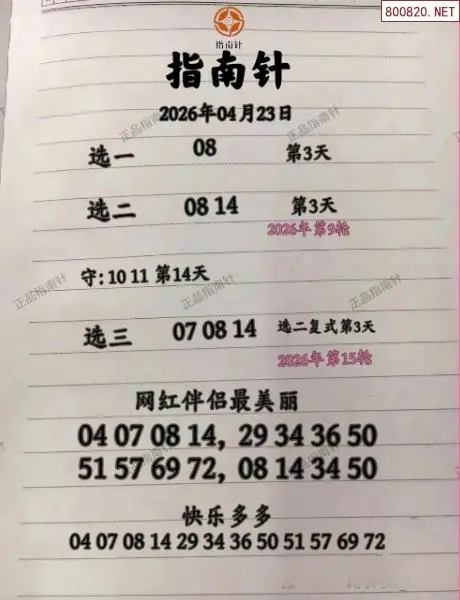 800820.NET
指南针
指南针
2026年04月23日
选一 08 第3天
选二 08 14 第3天
2026年第9轮
守:10 11 第14天
选三 07 08 14 选二复式第3天
2026年第15轮
网红伴侣最美丽
04 07 08 14, 29 34 36 50
51 57 69 72, 08 14 34 50
快乐多多
04 07 08 14 29 34 36 50 51 57 69 72
正品指南针
正品指南针
正品指南针
正品指南针
正品指南针